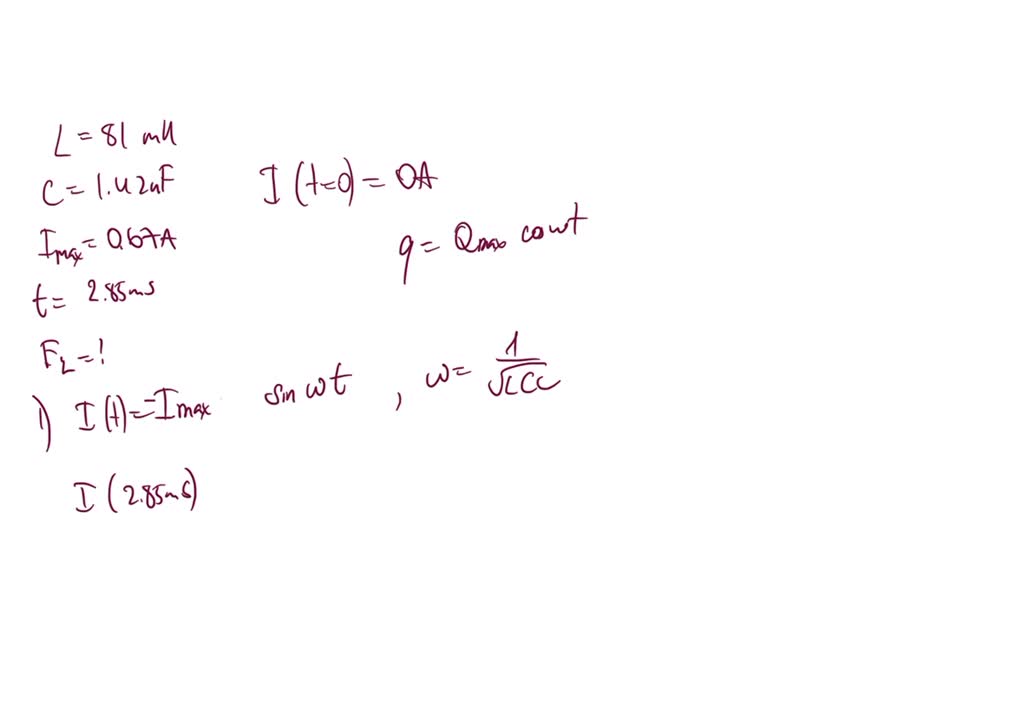 L = 81 mH
C = 1.42 nF
I (t=0) = 0A
Imax = 0.67A
q = Qmax cos wt
t = 2.85ms
FL = !
1) I (t) = -Imax sin wt , ω = 1/√LC
I (2.85ms)